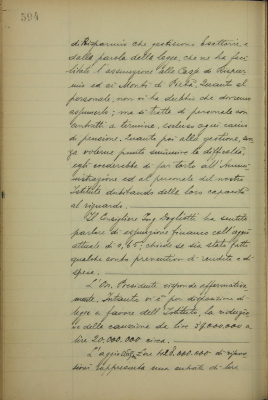 594
di Risparmio che gestiscono esattorie e
dalla parola della legge, che ne ha faci
litato l'assunzione alle Casse di Rispar
mio ed ai Monti di Pietà. Quanto al
personale, non vi ha dubbio che dovremo
assumerlo; ma si tratta di personale con
contratti a termine, escluso ogni carico
di pensione. Quanto poi alla gestione, sen
za volerne punto sminuire le difficoltà,
egli crederebbe di far torto all'Ammi
nistrazione ed al personale del nostro
Istituto dubitando della loro capacità
al riguardo.
Il Consigliere Ing. Foglietti ha sentito
parlare di assunzione coll'aggio
attuale di 0,65; chiede se sia stato fatto
qualche conto preventivo di rendite e di
spese.
L'On. Presidente risponde affermativa
mente. Intanto vi è per disposizione di
legge a favore dell'Istituto, la riduzio
ne della cauzione da lire 29.000.000 a
lire 20.000.000 circa.
L'aggio lire 128.000.000 di riscos
sioni rappresenta una entrata di lire